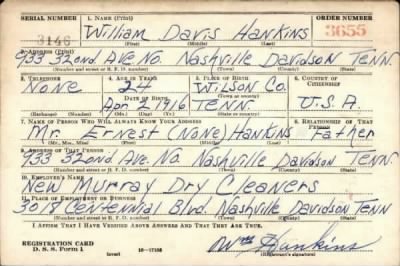 SERIAL NUMBER 1. NAME (Print) ORDER NUMBER
3146 William Davis Hankins 3655
(First) (Middle) (Last)
2. ADDRESS (Print)
933 32nd Ave. No. Nashville Davidson Tenn.
(Number and street or R. F. D. number) (Town) (County) (State)
3. TELEPHONE 4. AGE IN YEARS 5. PLACE OF BIRTH 6. COUNTRY OF CITIZENSHIP
None 24 Wilson Co.
DATE OF BIRTH (Town or county)
Apr 2 1916 Tenn. U.S.A.
(Exchange) (Number) (Mo.) (Day) (Yr.) (State or country)
7. NAME OF PERSON WHO WILL ALWAYS KNOW YOUR ADDRESS 8. RELATIONSHIP OF THAT PERSON
Mr. Ernest (None) Hankins Father
(Mr., Mrs., Miss) (First) (Middle) (Last)
9. ADDRESS OF THAT PERSON
933 32nd Ave. No. Nashville Davidson Tenn
(Number and street or R. F. D. number) (Town) (County) (State)
10. EMPLOYER'S NAME
New Murray Dry Cleaners
11. PLACE OF EMPLOYMENT OR BUSINESS
3018 Centennial Blvd. Nashville Davidson Tenn
(Number and street or R. F. D. number) (Town) (County) (State)
I AFFIRM THAT I HAVE VERIFIED ABOVE ANSWERS AND THAT THEY ARE TRUE.
REGISTRATION CARD
D. S. S. Form 1 (over) 16-17105 Wm Hankins
(Registrant's signature)